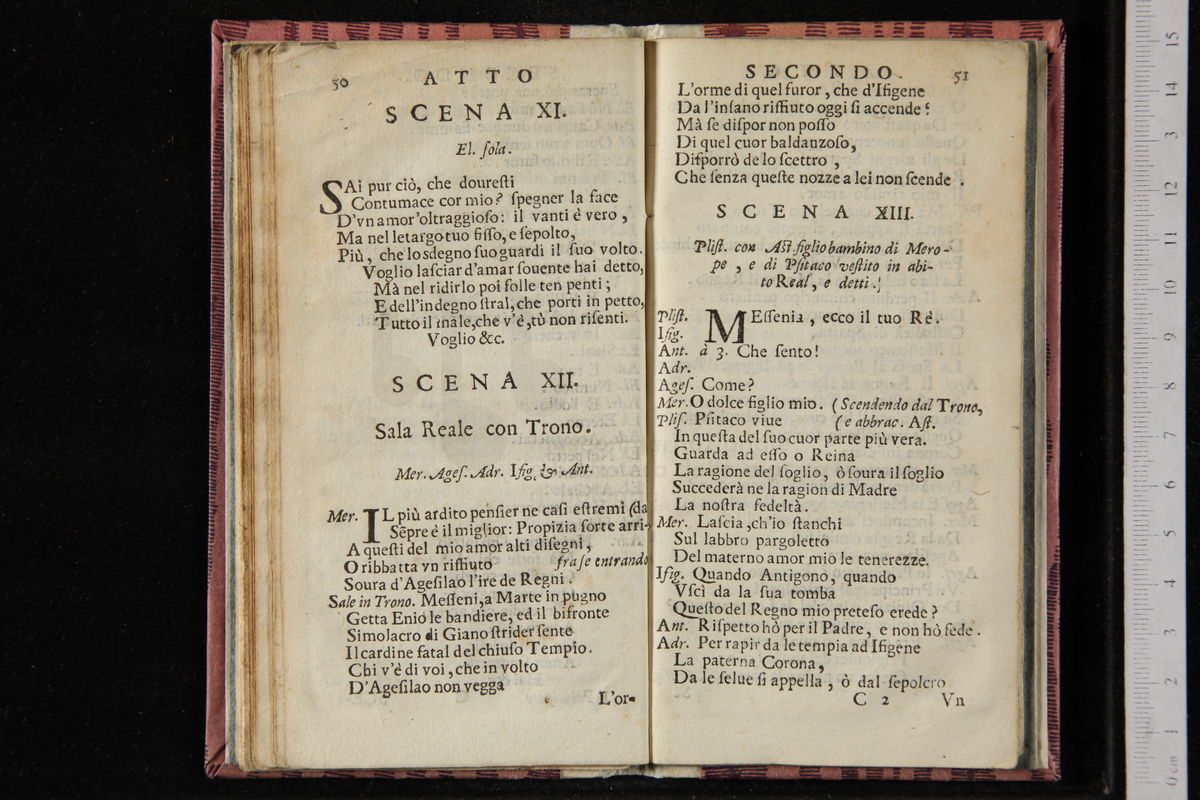 50 ATTO
SCENA XI.
El. ſola.
SAi pur ciò, che doureſti
Contumace cor mio? ſpegner la face
D'vn amor'oltraggioſo: il vanti è vero,
Ma nel letargo tuo fiſſo, e ſepolto,
Più, che lo sdegno ſuo guardi il ſuo volto.
Voglio laſciar d'amar ſouente hai detto,
Mà nel ridirlo poi folle ten penti;
E dell'indegno ſtral, che porti in petto,
Tutto il male, che v'è, tù non riſenti.
Voglio &c.
SCENA XII.
Sala Reale con Trono.
Mer. Ageſ. Adr. Iſig. & Ant.
Mer. IL più ardito penſier ne caſi eſtremi (da
Sẽpre è il miglior: Propizia ſorte arri-
A queſti del mio amor alti diſegni,
O ribbatta vn riffiuto fra ſe entrando
Soura d'Ageſilao l'ire de Regni.
Sale in Trono. Meſſeni, a Marte in pugno
Getta Eniò le bandiere, ed il bifronte
Simolacro di Giano ſtrider ſente
Il cardine fatal del chiuſo Tempio.
Chi v'è di voi, che in volto
D'Ageſilao non vegga
L'or-
SECONDO. 51
L'orme di quel furor, che d'Iſigene
Da l'inſano riffiuto oggi ſi accende?
Mà ſe diſpor non poſſo
Di quel cuor baldanzoſo,
Diſporrò de lo ſcettro,
Che ſenza queſte nozze a lei non ſcende.
SCENA XIII.
Pliſt. con Aſt. figlio bambino di Mero-
pe, e di Pſitaco veſtito in abi-
to Real, e detti.
Pliſt. MEſſenia, ecco il tuo Rè.
Iſig.
Ant. à 3. Che ſento!
Adr.
Ageſ. Come?
Mer. O dolce figlio mio. (Scendendo dal Trono,
Pliſ. Pſitaco viue (e abbrac. Aſt.
In queſta del ſuo cuor parte più vera.
Guarda ad eſſo o Reina
La ragione del ſoglio, ò ſoura il ſoglio
Succederà ne la ragion di Madre
La noſtra fedeltà.
Mer. Laſcia, ch'io ſtanchi
Sul labbro pargoletto
Del materno amor mio le tenerezze.
Iſig. Quando Antigono, quando
Vſcì da la ſua tomba
Queſto del Regno mio preteſo erede?
Ant. Riſpetto hò per il Padre, e non hò fede.
Adr. Per rapir da le tempia ad Iſigene
La paterna Corona,
Da le ſelue ſi appella, ò dal ſepolcro
C 2 Vn
0 cm 1 2 3 4 5 6 7 8 9 10 11 12 13 14 15